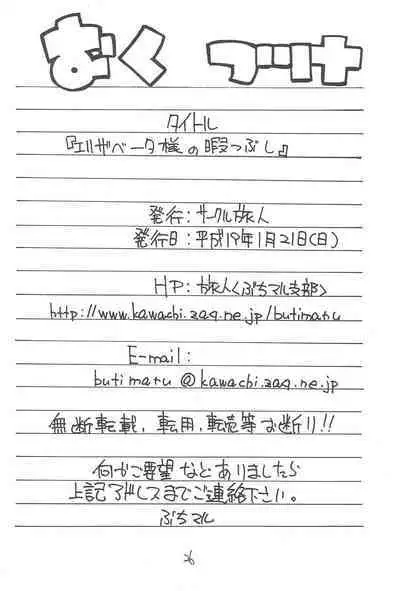 おくづけ
タイトル
『エルザベータ様の暇つぶし』
発行:サークル旅人
発行日:平成19年1月21日(日)
HP:旅人<ぶちマル支部>
http://www.kawachi.zaq.ne.jp/butimaru
E-mail:
butimaru@kawachi.zaq.ne.jp
無断転載,転用,転売等お断り!!
何かご要望などありましたら
上記アドレスまでご連絡下さい。
ぶちマル
26